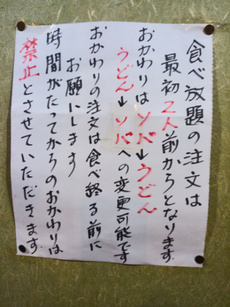 食べ放題の注文は
最初2人前からとなります
おかわりはソバ→うどん
うどん→ソバへの変更可能です
おかわりの注文は食べ終る前に
お願いします
時間がたってからのおかわりは
禁止とさせていただきます